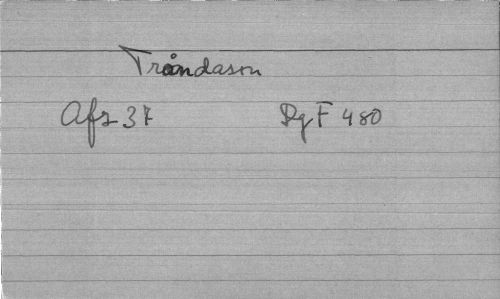 Tråndason
Afs 37 Dg F 480